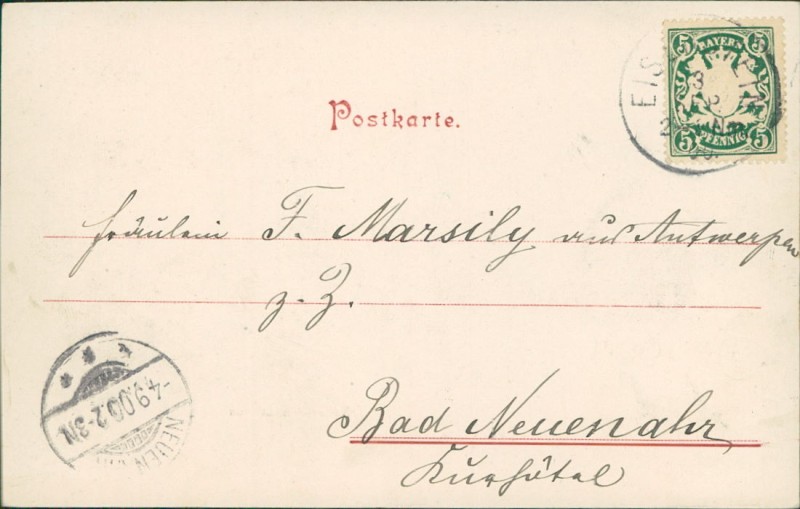 Postkarte.
5 BAYERN 5
5 PFENNIG 5
Fräulein F. Marsily aus Antwerpen
z. Z.
Bad Neuenahr
Kurhôtel
4.9.00. 2-3N.
NEUEN